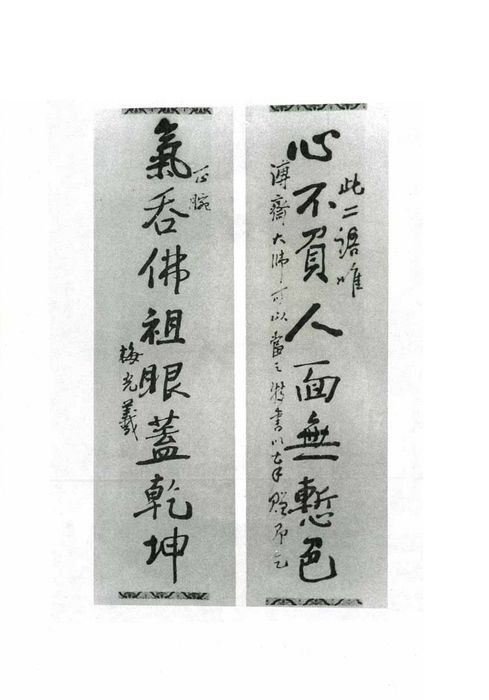 此二語唯
心不負人面無慙色
溥齋大師可以當之特書以奉贈即乞
正腕
氣吞佛祖眼蓋乾坤
梅光羲